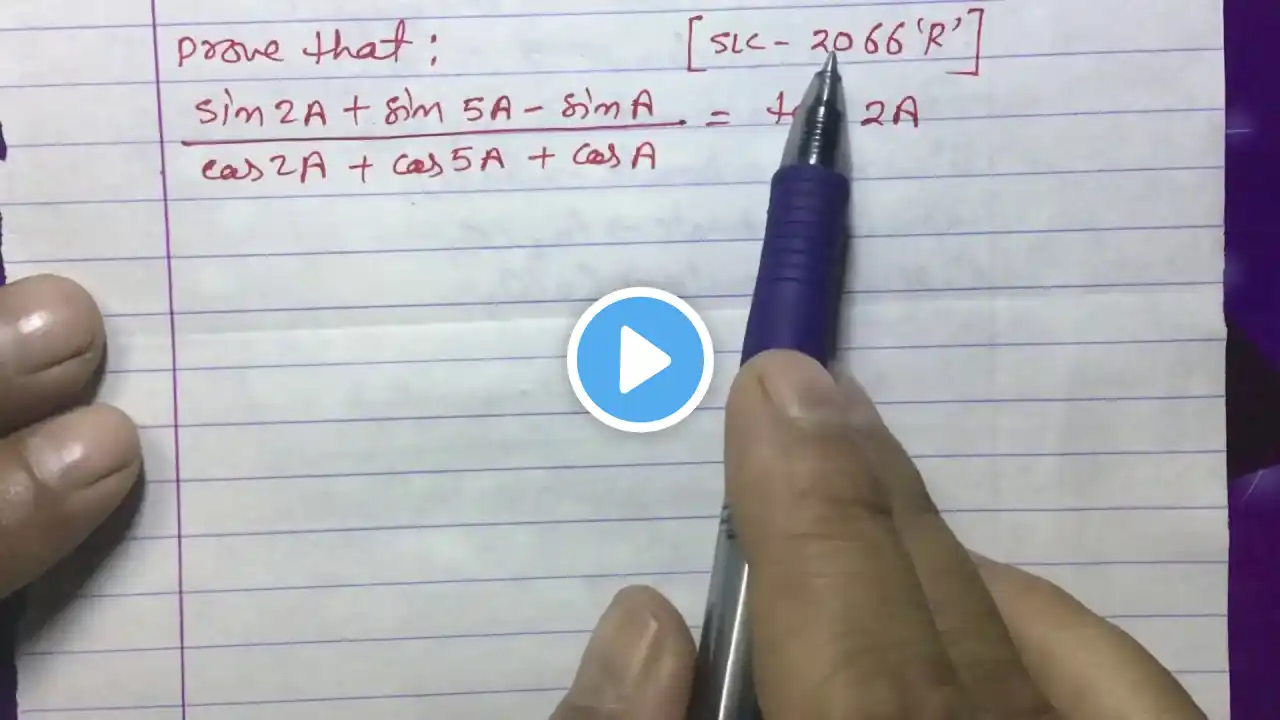 prove that : [SLC - 2066 'R']
sin 2A + sin 5A - sin A
= 2A
cos 2A + cos 5A + cos A